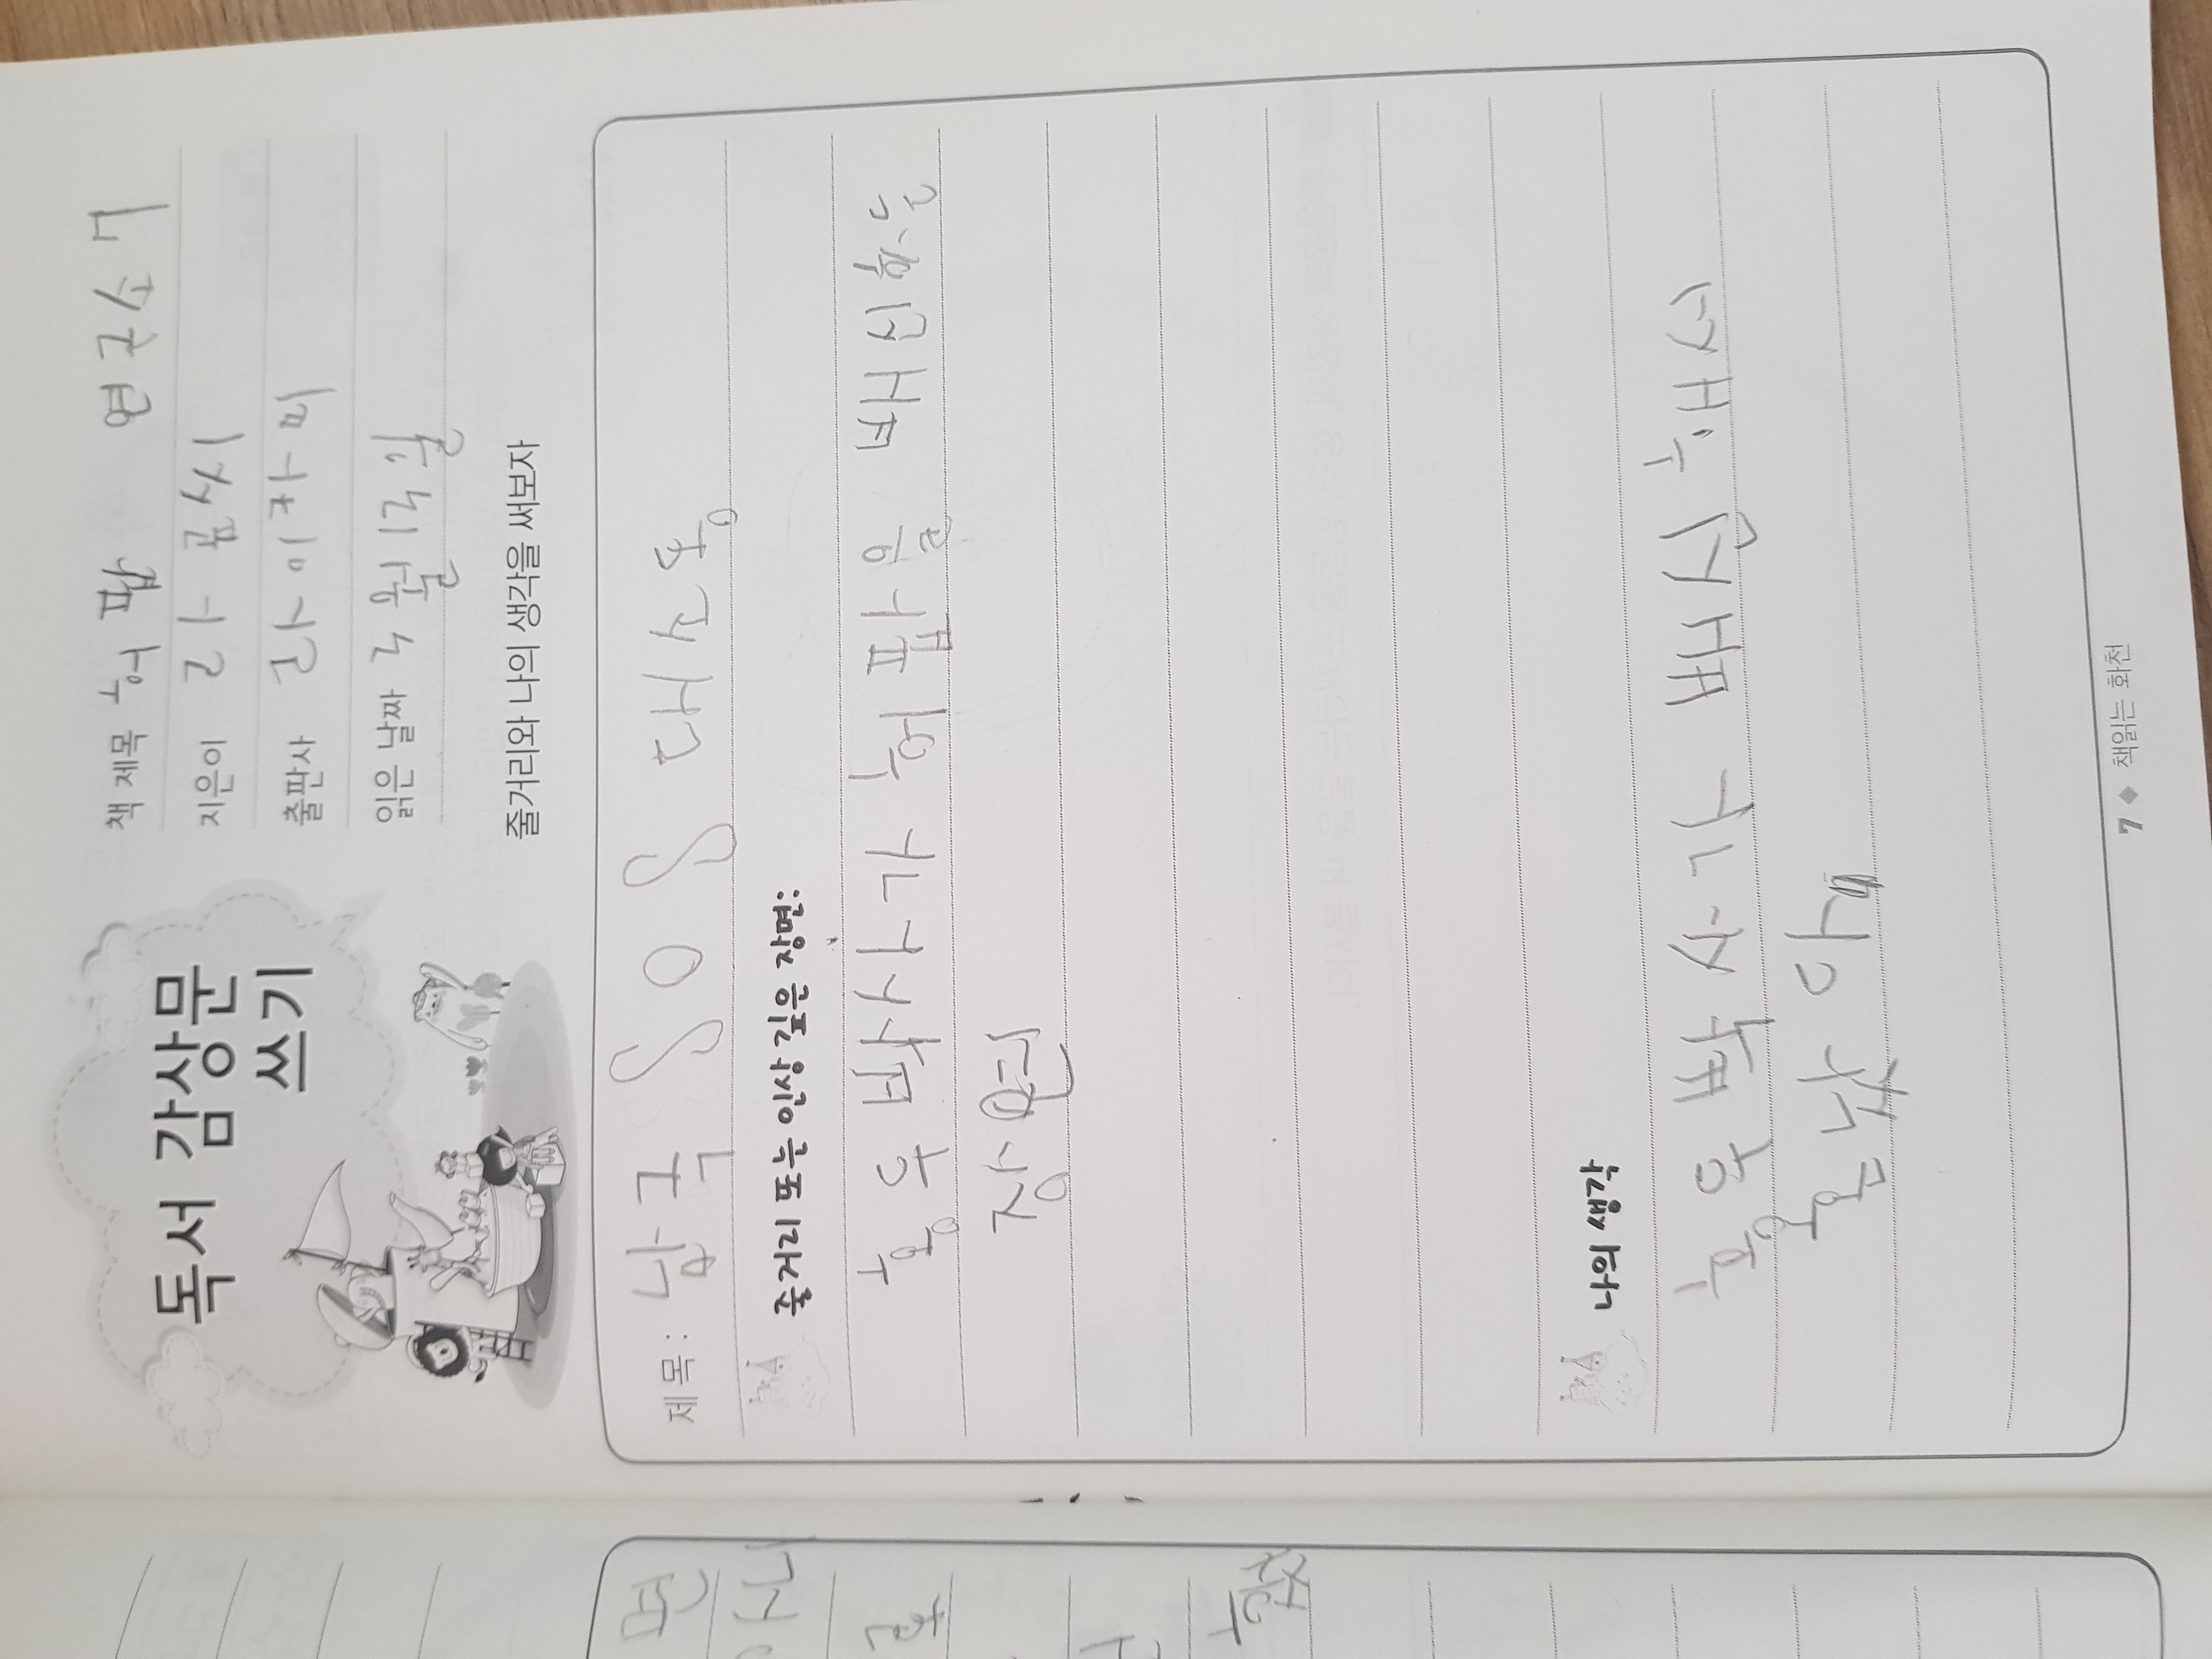 독서 감상문
쓰기
책 제목 허팝 연구소 7
지은이 라곰씨
출판사 라이카미
읽은 날짜 3월 13일
줄거리와 나의 생각을 써보자
제목: 남극 SOS 대소동
줄거리 또는 인상 깊은 장면:
홍우박사가 허팝을 배신하는
장면
나의 생각
홍우박사가 배신해서
혼났다
7 ◆ 책읽는 화천